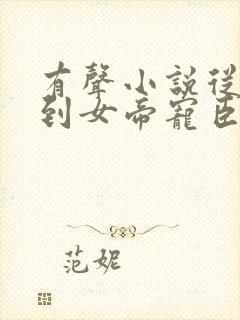 有聲小說從
到女帝寵臣
范妮